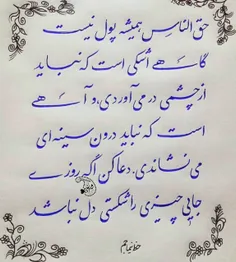 حق الناس همیشه پول نیست
گاهے اشکی است که نباید
از چشمی در می‌آوردی، و آهے
است که نباید درون سینه‌ای
می نشاندی. دعا کن اگر روزے
جایی چیزی را شکستی دل نباشد